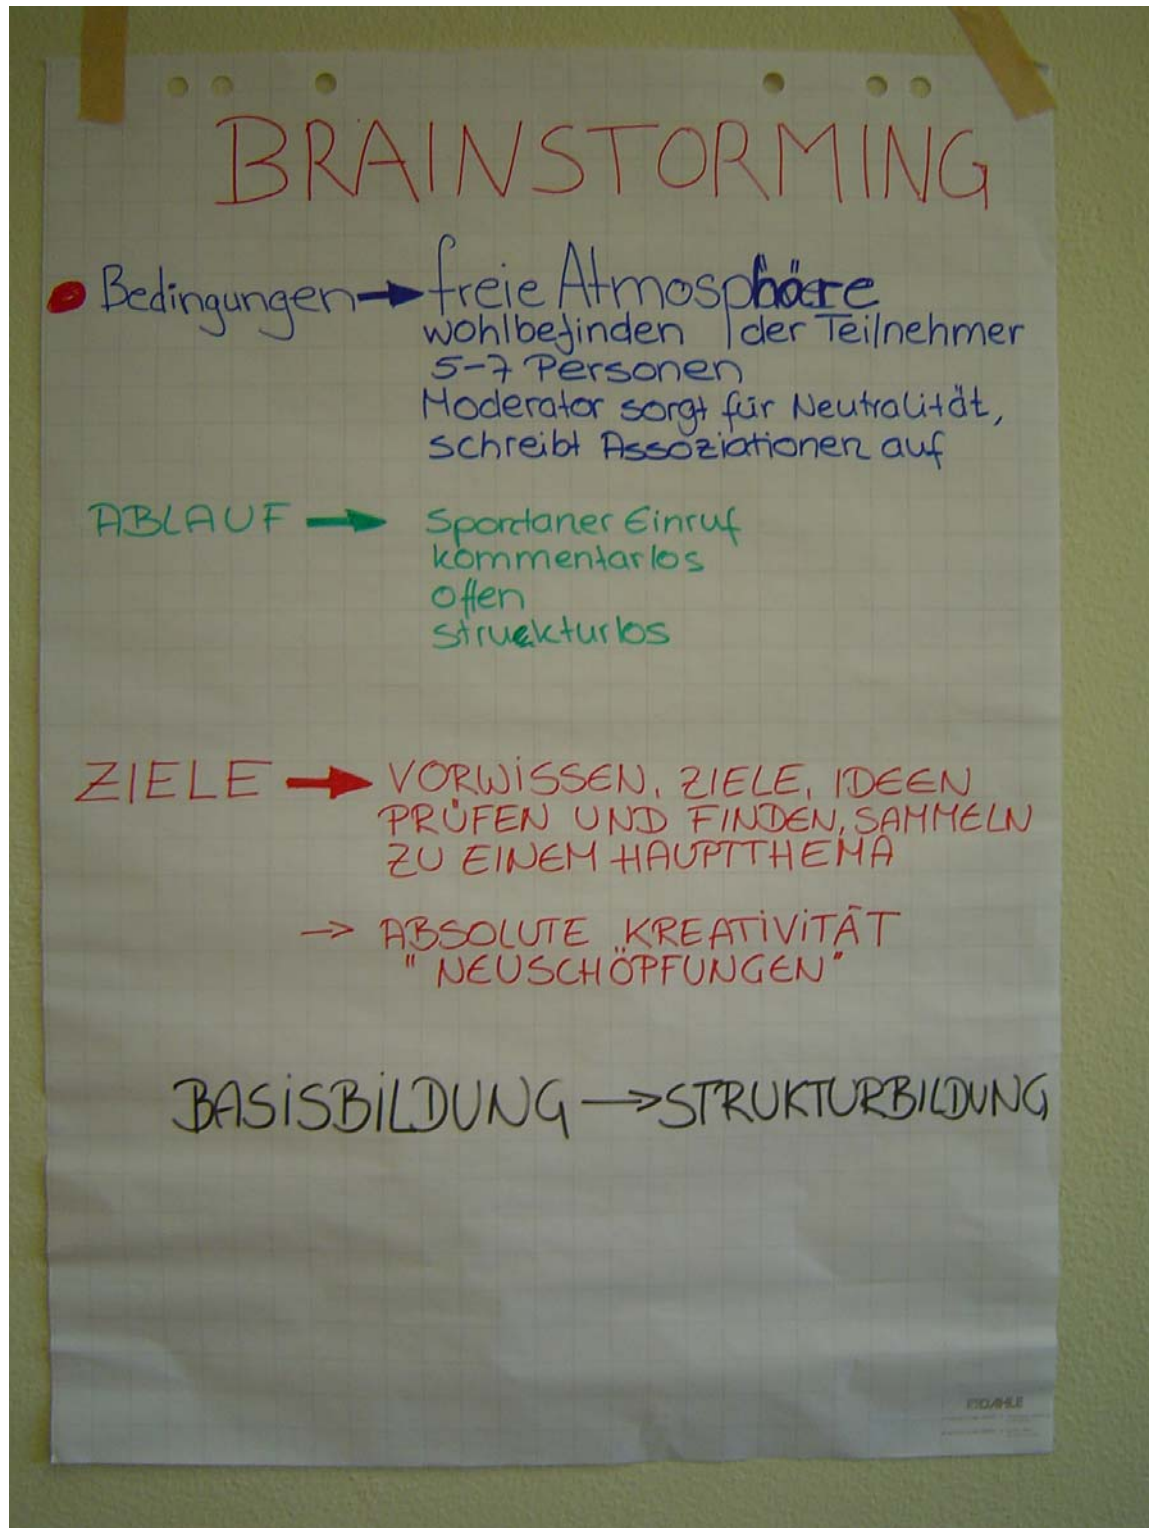 BRAINSTORMING
Bedingungen → freie Atmosphäre
wohlbefinden der Teilnehmer
5-7 Personen
Moderator sorgt für Neutralität,
schreibt Assoziationen auf
ABLAUF → Spontaner Einruf
kommentarlos
offen
strukturlos
ZIELE → VORWISSEN, ZIELE, IDEEN
PRÜFEN UND FINDEN, SAMMELN
ZU EINEM HAUPTTHEMA
→ ABSOLUTE KREATIVITÄT
"NEUSCHÖPFUNGEN"
BASISBILDUNG → STRUKTURBILDUNG
DAHLE